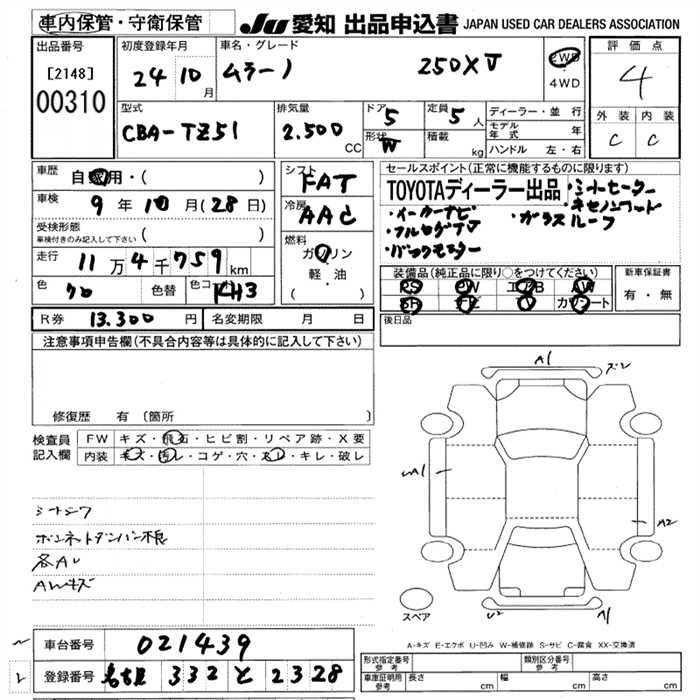 車内保管・守衛保管
JU 愛知 出品申込書 JAPAN USED CAR DEALERS ASSOCIATION
出品番号
[2148]
00310
初度登録年月
24 10月
車名・グレード
ムラーノ 250XV
2WD
・
4WD
評価点
4
外装 内装
C C
型式
CBA-TZ51
排気量
2.500 CC
ドア
5
形状
W
定員
5人
積載 kg
ディーラー・並行
モデル年式 年
ハンドル 左・右
車歴
自家用・( )
車検
9年10月(28日)
受検形態
車検付きのみ記入して下さい ( )
走行
11万4千759km
色
クロ 色替 色コード KH3
シフト
FAT
冷房
AAC
燃料
ガソリン
軽・油
( )
セールスポイント(正常に機能するものに限ります)
TOYOTAディーラー出品 ・シートヒーター
・イーカーナビ ・キセノンライト
・フルセグTV ・ガラスルーフ
・バックモニター
装備品(純正品に限り○をつけてください)
PS PW エアB AW
SR ナビ TV カワシート
新車保証書
有・無
R券 13.300円 名変期限 月 日
後日品
注意事項申告欄(不具合内容等は具体的に記入して下さい)
修復歴 有〔箇所 〕
検査員
記入欄
FW キズ・飛石・ヒビ割・リペア跡・X要
内装 キズ・汚レ・コゲ・穴・スレ・キレ・破レ
シートシワ
ボンネットダンパー不良
各AU
AWキズ
A1
A1
A2
U2
A1
スペア
A-キズ E-エクボ U-凹み W-補修跡 S-サビ C-腐食 XX-交換済
車台番号 021439
登録番号 名古屋 332 と 2328
形式指定番号
参考
類別区分番号
参考
車庫証明用
参考
長さ cm 幅 cm 高さ cm